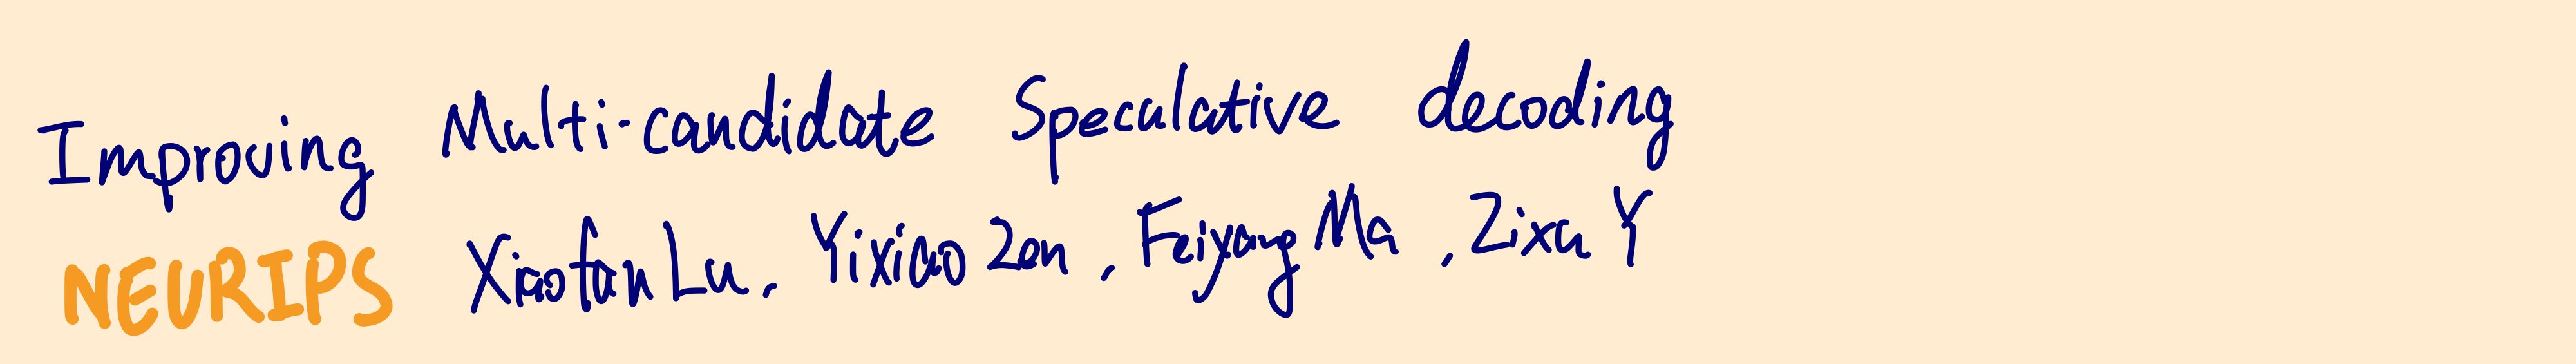 Improving Multi-candidate Speculative decoding
NEURIPS Xiaofan Lu, Yixiao Zen, Feiyang Ma, Zixu Y